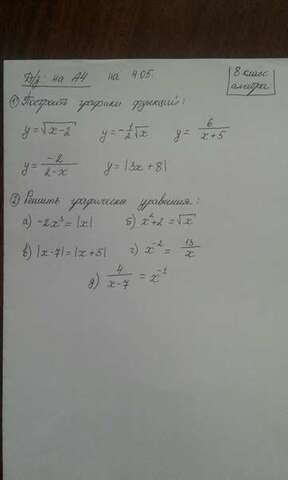 Д/з на А4 на 4.05.
8 класс
алгебра
① Построить графики функций:
y = √x-2 y = -1/2 √x y = 6/(x+5)
y = -2/(2-x) y = |3x+8|
② Решить графически уравнения:
а) -2x³ = |x| б) x²+2 = √x
в) |x-7| = |x+5| г) x⁻² = 13/x
д) 4/(x-7) = x⁻¹